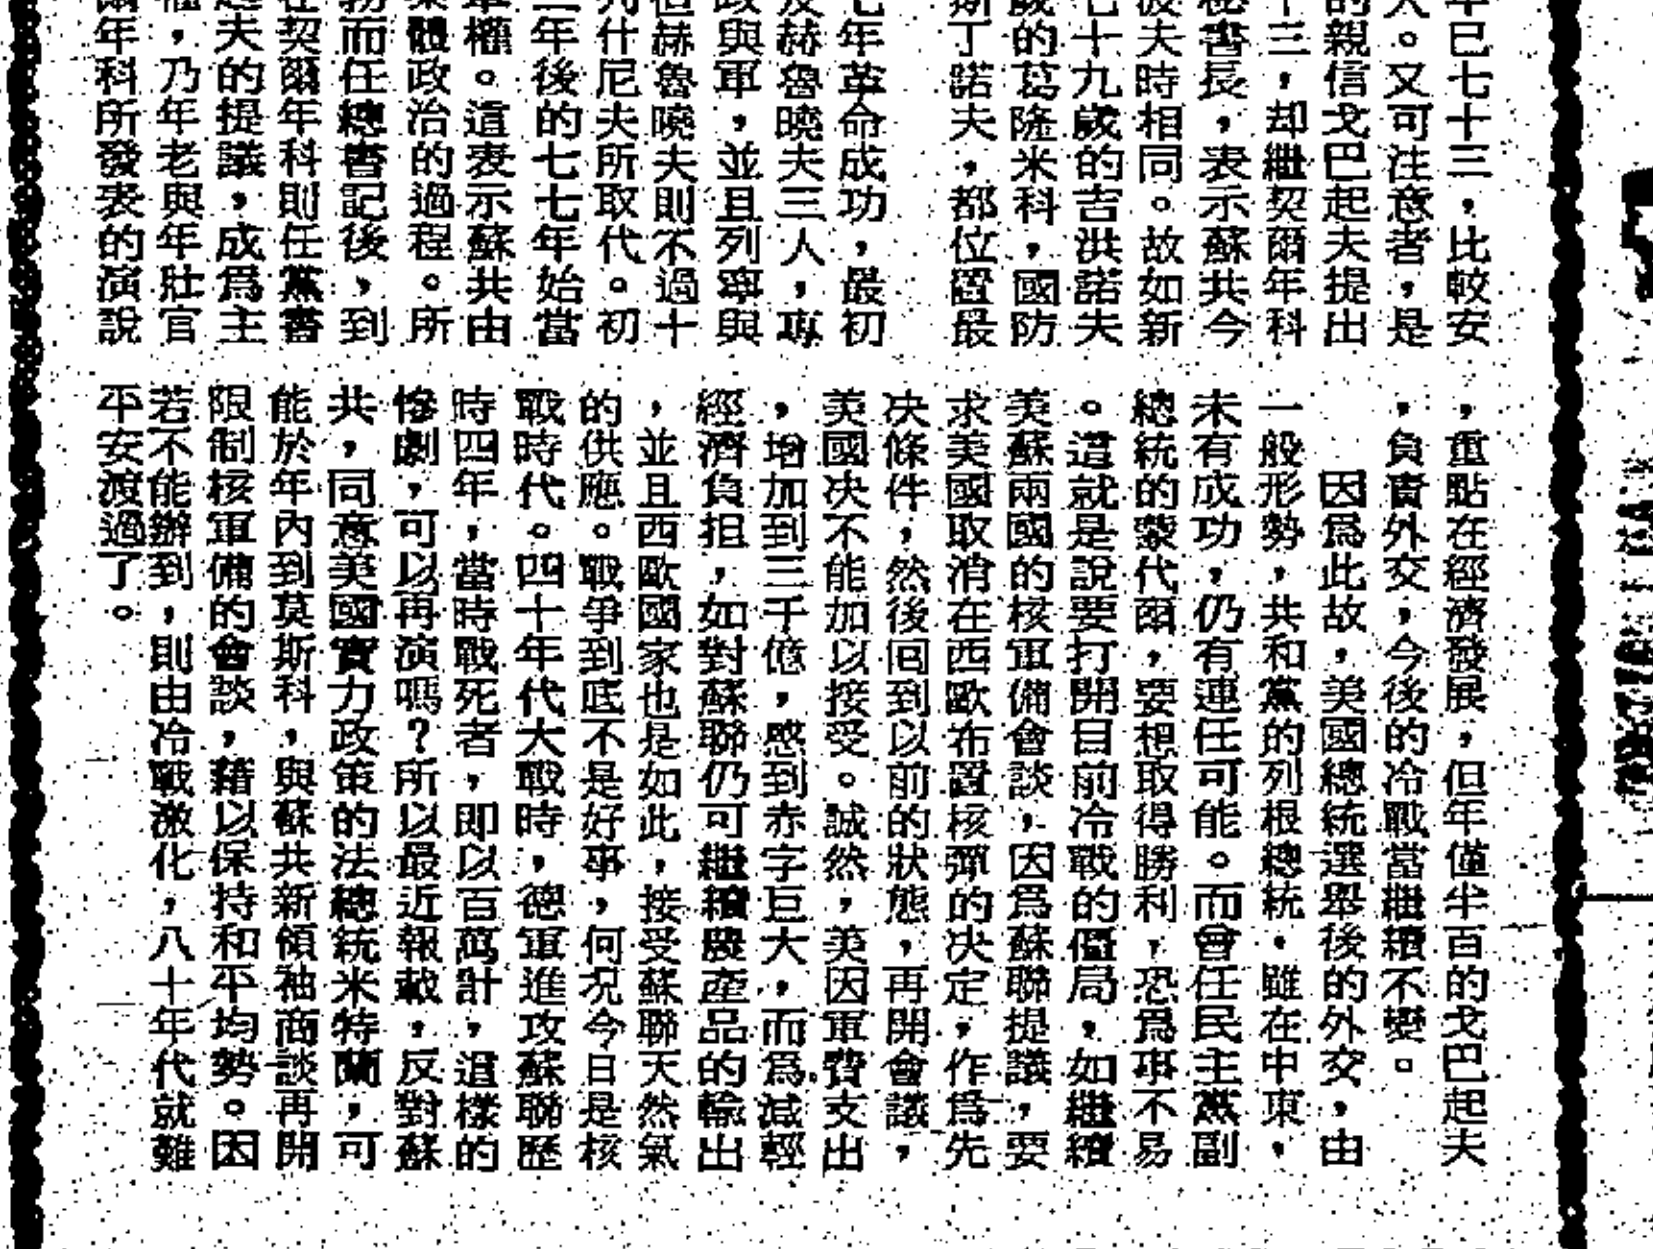 年已七十三，比較安
人。又可注意者，是
的親信戈巴起夫提出
十三，却繼契爾年科
秘書長，表示蘇共今
波夫時相同。故如新
七十九歲的吉洪諾夫
歲的葛隆米科，國防
斯丁諾夫，都位置最
七年革命成功，最初
及赫魯曉夫三人，專
政與軍，並且列寧與
但赫魯曉夫則不過十
列什尼夫所取代。初
年後的七七年始當
軍權。這表示蘇共由
集體政治的過程。所
務而任總書記後，到
在契爾年科則任黨書
起夫的提議，成爲主
權，乃年老與年壯官
爾年科所發表的演說
，重點在經濟發展，但年僅半百的戈巴起夫
，負責外交，今後的冷戰當繼續不變。
因爲此故，美國總統選舉後的外交，由
一般形勢，共和黨的列根總統，雖在中東，
未有成功，仍有連任可能。而曾任民主黨副
總統的蒙代爾，要想取得勝利，恐爲事不易
。這就是說要打開目前冷戰的僵局，如繼續
美蘇兩國的核軍備會談，因爲蘇聯提議，要
求美國取消在西歐布置核彈的决定，作爲先
决條件，然後囘到以前的狀態，再開會議，
美國决不能加以接受。誠然，美因軍費支出
，增加到三千億，感到赤字巨大，而爲減輕
經濟負担，如對蘇聯仍可繼續農產品的輸出
，並且西歐國家也是如此，接受蘇聯天然氣
的供應。戰爭到底不是好事，何況今日是核
戰時代。四十年代大戰時，德軍進攻蘇聯歷
時四年，當時戰死者，即以百萬計，這樣的
慘劇，可以再演嗎？所以最近報載，反對蘇
共，同意美國實力政策的法總統米特蘭，可
能於年內到莫斯科，與蘇共新領袖商談再開
限制核軍備的會談，藉以保持和平均勢。因
若不能辦到，則由冷戰激化，八十年代就難
平安渡過了。